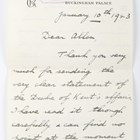 BUCKINGHAM PALACE
January 10th 1943
Dear Allen
Thank you very
much for sending the
very clear statement of
the Duke of Kent's
I have read it through
carefully & can find no
point at the moment